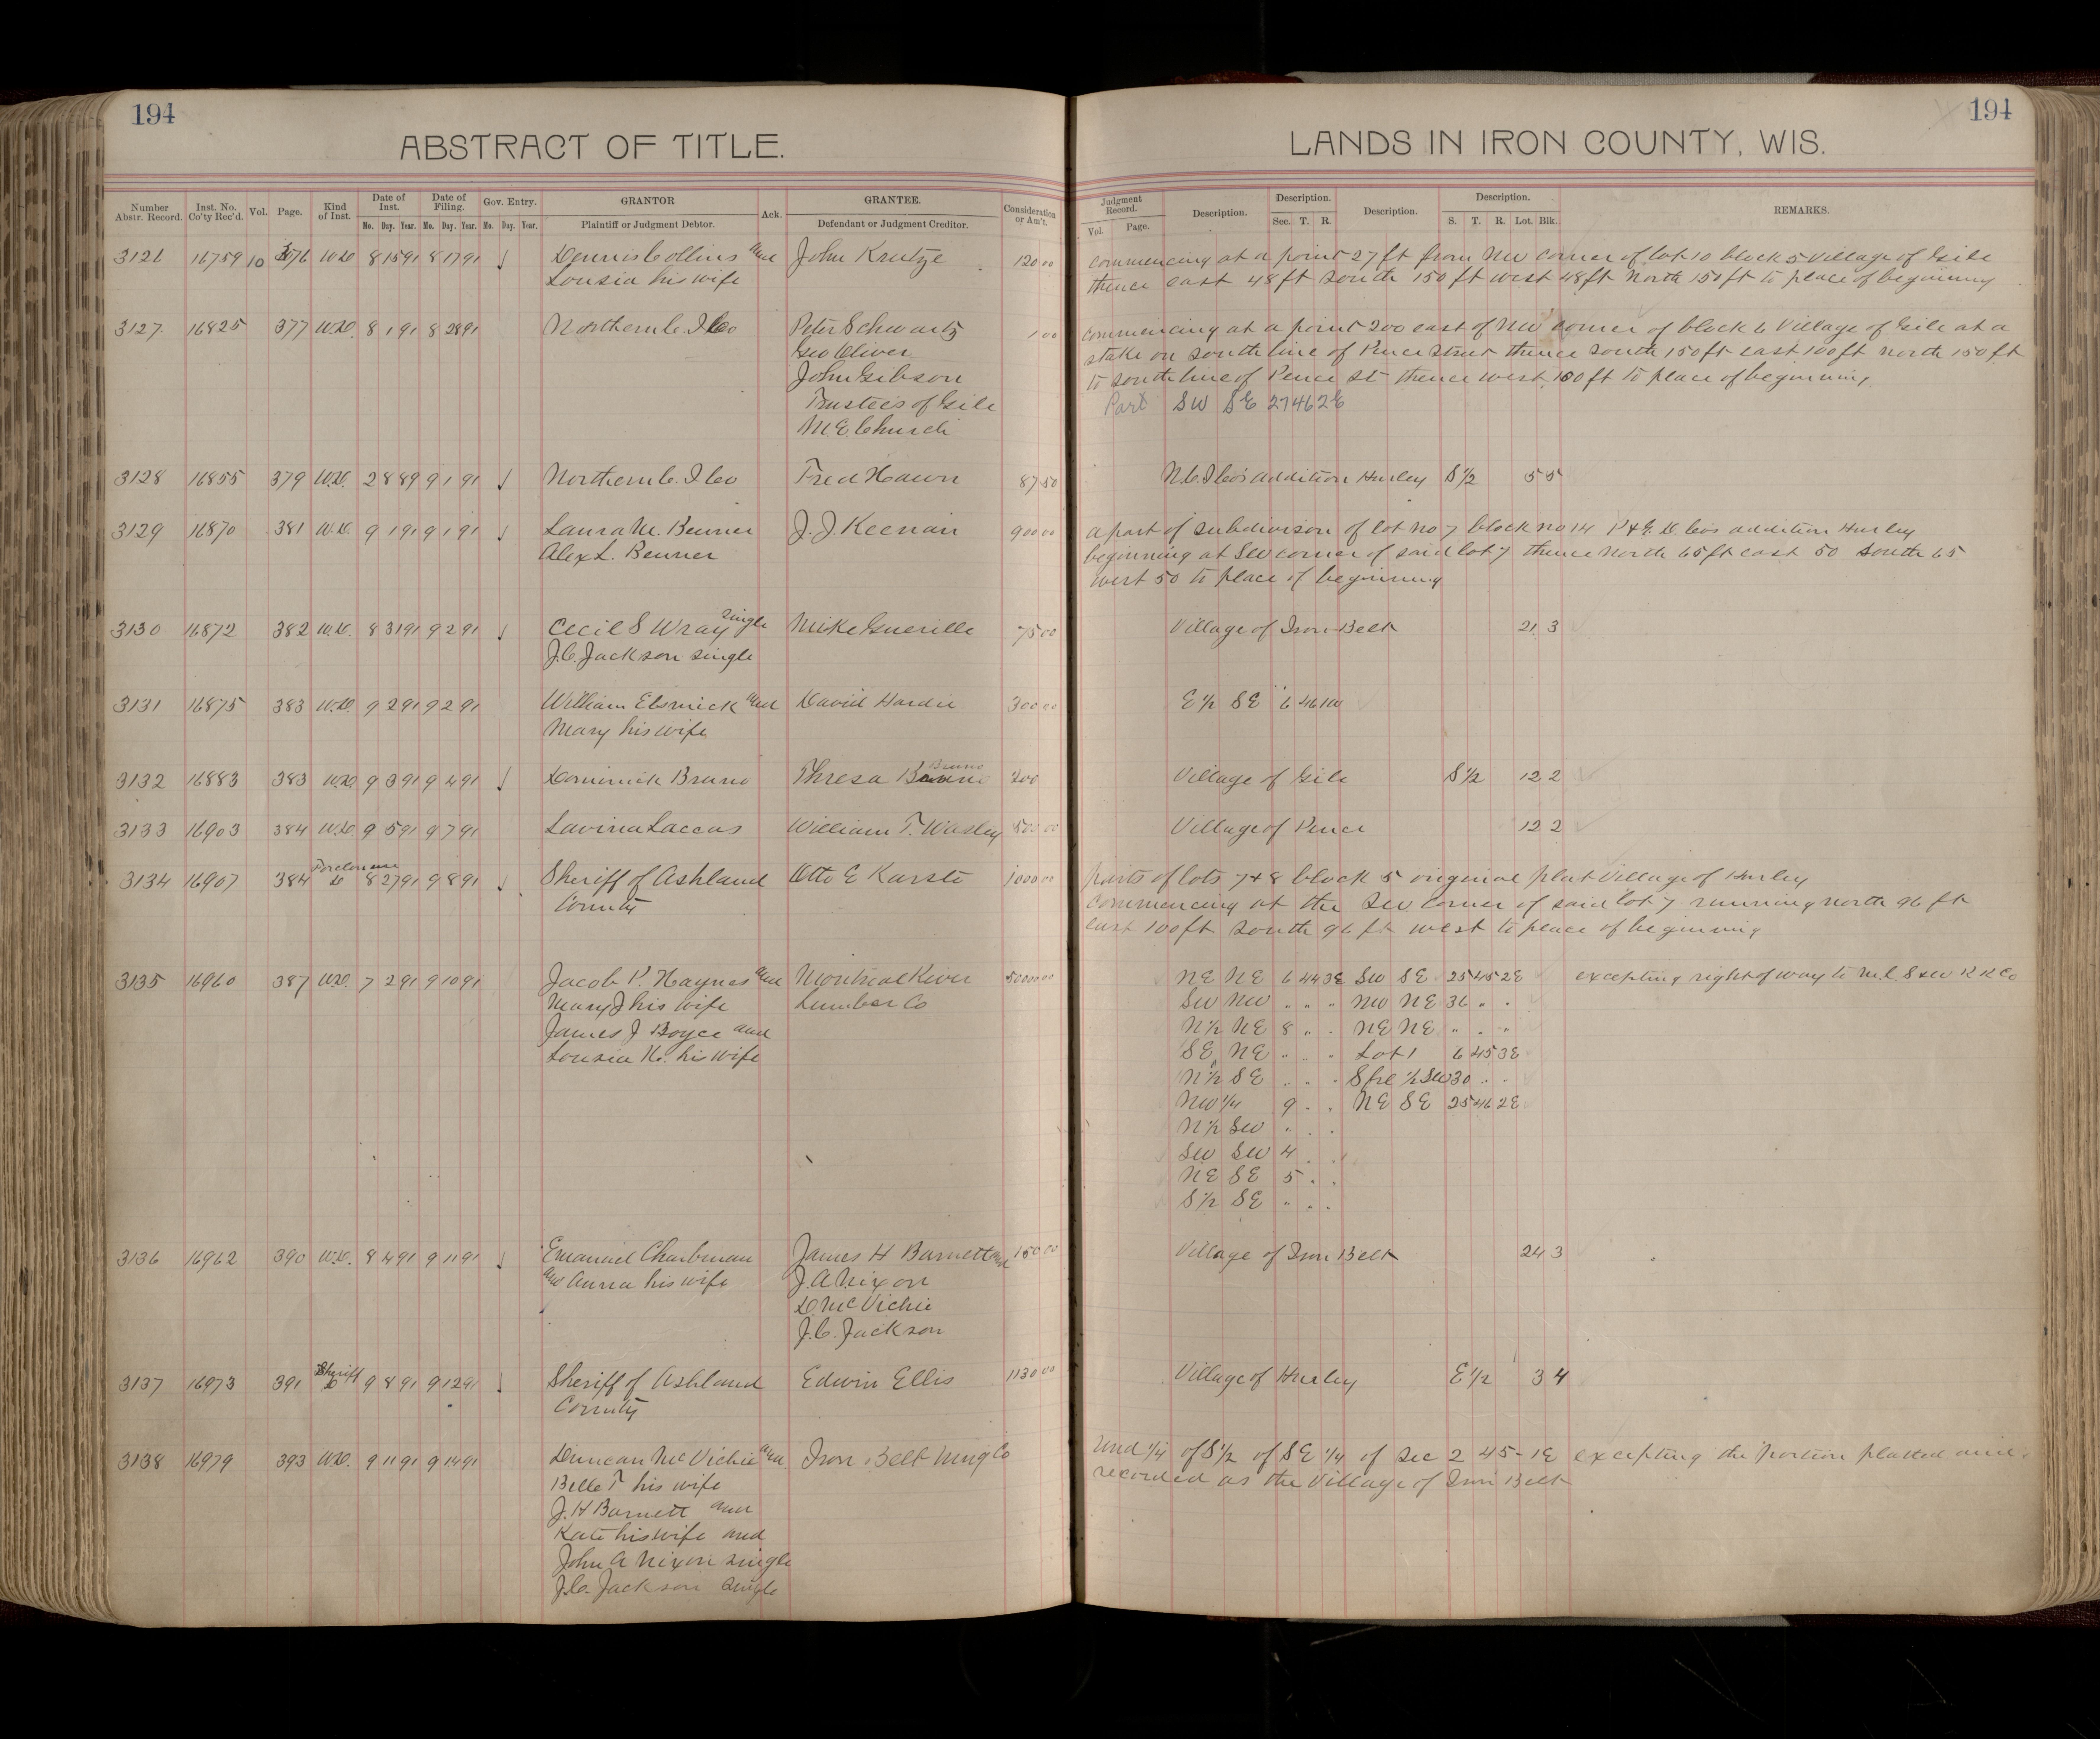 194
ABSTRACT OF TITLE.
Number Abstr. Record. Inst. No. Co'ty Rec'd. Vol. Page. Kind of Inst. Date of Inst. Date of Filing. Gov. Entry. GRANTOR Ack. GRANTEE. Consideration or Am't.
Mo. Day. Year. Mo. Day. Year. Mo. Day. Year. Plaintiff or Judgment Debtor. Defendant or Judgment Creditor.
3126 16759 10 376 W.D. 8 15 91 8 17 91 Dennis Collins and John Kreutze 120 00
Lousia his wife
3127 16825 377 W.D. 8 1 91 8 28 91 Northern C. I Co Peter Schwartz 1 00
Geo Oliver
John Gibson
Trustees of Gile
M.E. Church
3128 16855 379 W.D. 2 8 89 9 1 91 Northern C. I Co Fred Hawn 87 50
3129 16870 381 W.D. 9 1 91 9 1 91 Laura M. Benner J.J. Keenan 900 00
Alex L. Benner
3130 16872 382 W.D. 8 31 91 9 2 91 Cecil S Wray single Mike Guerille 75 00
J.C. Jackson single
3131 16875 383 W.D. 9 2 91 9 2 91 William Ebsnick and David Hardie 300 00
Mary his wife
3132 16883 383 W.D. 9 3 91 9 4 91 Dominick Bruno Thresa Bruno 200
3133 16903 384 W.D. 9 5 91 9 7 91 Lavina Laccas William T. Wasley 500 00
3134 16907 384 D 8 27 91 9 8 91 Sheriff of Ashland Otto E Karste 1000 00
County
3135 16960 387 W.D. 7 2 91 9 10 91 Jacob P. Haynes and Montreal River 50000 00
Mary J his wife Lumber Co
James J Boyce and
Lousia K. his wife
3136 16962 390 W.D. 8 4 91 9 11 91 Emanuel Charbman James H Barnett and 150 00
and Anna his wife J.A Nixon
D. McVichie
J.C. Jackson
3137 16973 391 Sheriff D 9 8 91 9 12 91 Sheriff of Ashland Edwin Ellis 1130 00
County
3138 16979 393 W.D. 9 11 91 9 14 91 Duncan McVichie and Iron Belt Mng Co
Belle T his wife
J.H Barnett and
Kate his wife and
John A Nixon single
J.C. Jackson single
194
LANDS IN IRON COUNTY, WIS.
Judgment Record. Description. Description. Description. Description. REMARKS.
Vol. Page. Sec. T. R. S. T. R. Lot. Blk.
commencing at a point 27 ft from NW corner of lot 10 block 5 Village of Gile
thence east 48 ft south 150 ft west 48 ft North 150 ft to place of beginning
commencing at a point 200 east of NW corner of block 6 Village of Gile at a
stake on south line of Pence Street thence south 150 ft east 100 ft north 150 ft
to south line of Pence St thence west 100 ft to place of beginning
Part SW SE 27 46 2E
N.C.I Co's addition Hurley S 1/2 5 5
a part of subdivision of lot no 7 block no 14 Co's addition Hurley
beginning at SW corner of said lot 7 thence North 65 ft east 50 south 65
west 50 to place of beginning
Village of Iron Belt 21 3
E 1/2 SE 6 46 1W
Village of Gile S 1/2 12 2
Village of Pence 12 2
parts of lots 7 + 8 block 5 original plat Village of Hurley
commencing at the SW corner of said lot 7 running north 96 ft
east 100 ft south 96 ft west to place of beginning
NE NE 6 44 3E SW SE 25 45 2E excepting right of way to M.L S & W R R Co
SW NW " " " NW NE 36 " "
N 1/2 NE 8 " " NE NE " " "
SE NE " " " Lot 1 6 45 3E
N 1/2 SE " " " S frl 1/2 SW 30 " "
NW 1/4 9 " " NE SE 25 46 2E
N 1/2 SW " " "
SW SW 4 " "
NE SE 5 " "
S 1/2 SE " " "
Village of Iron Belt 24 3
Village of Hurley E 1/2 3 4
Und 1/4 of S 1/2 of SE 1/4 of Sec 2 45-1E excepting the portion platted and
recorded as the Village of Iron Belt